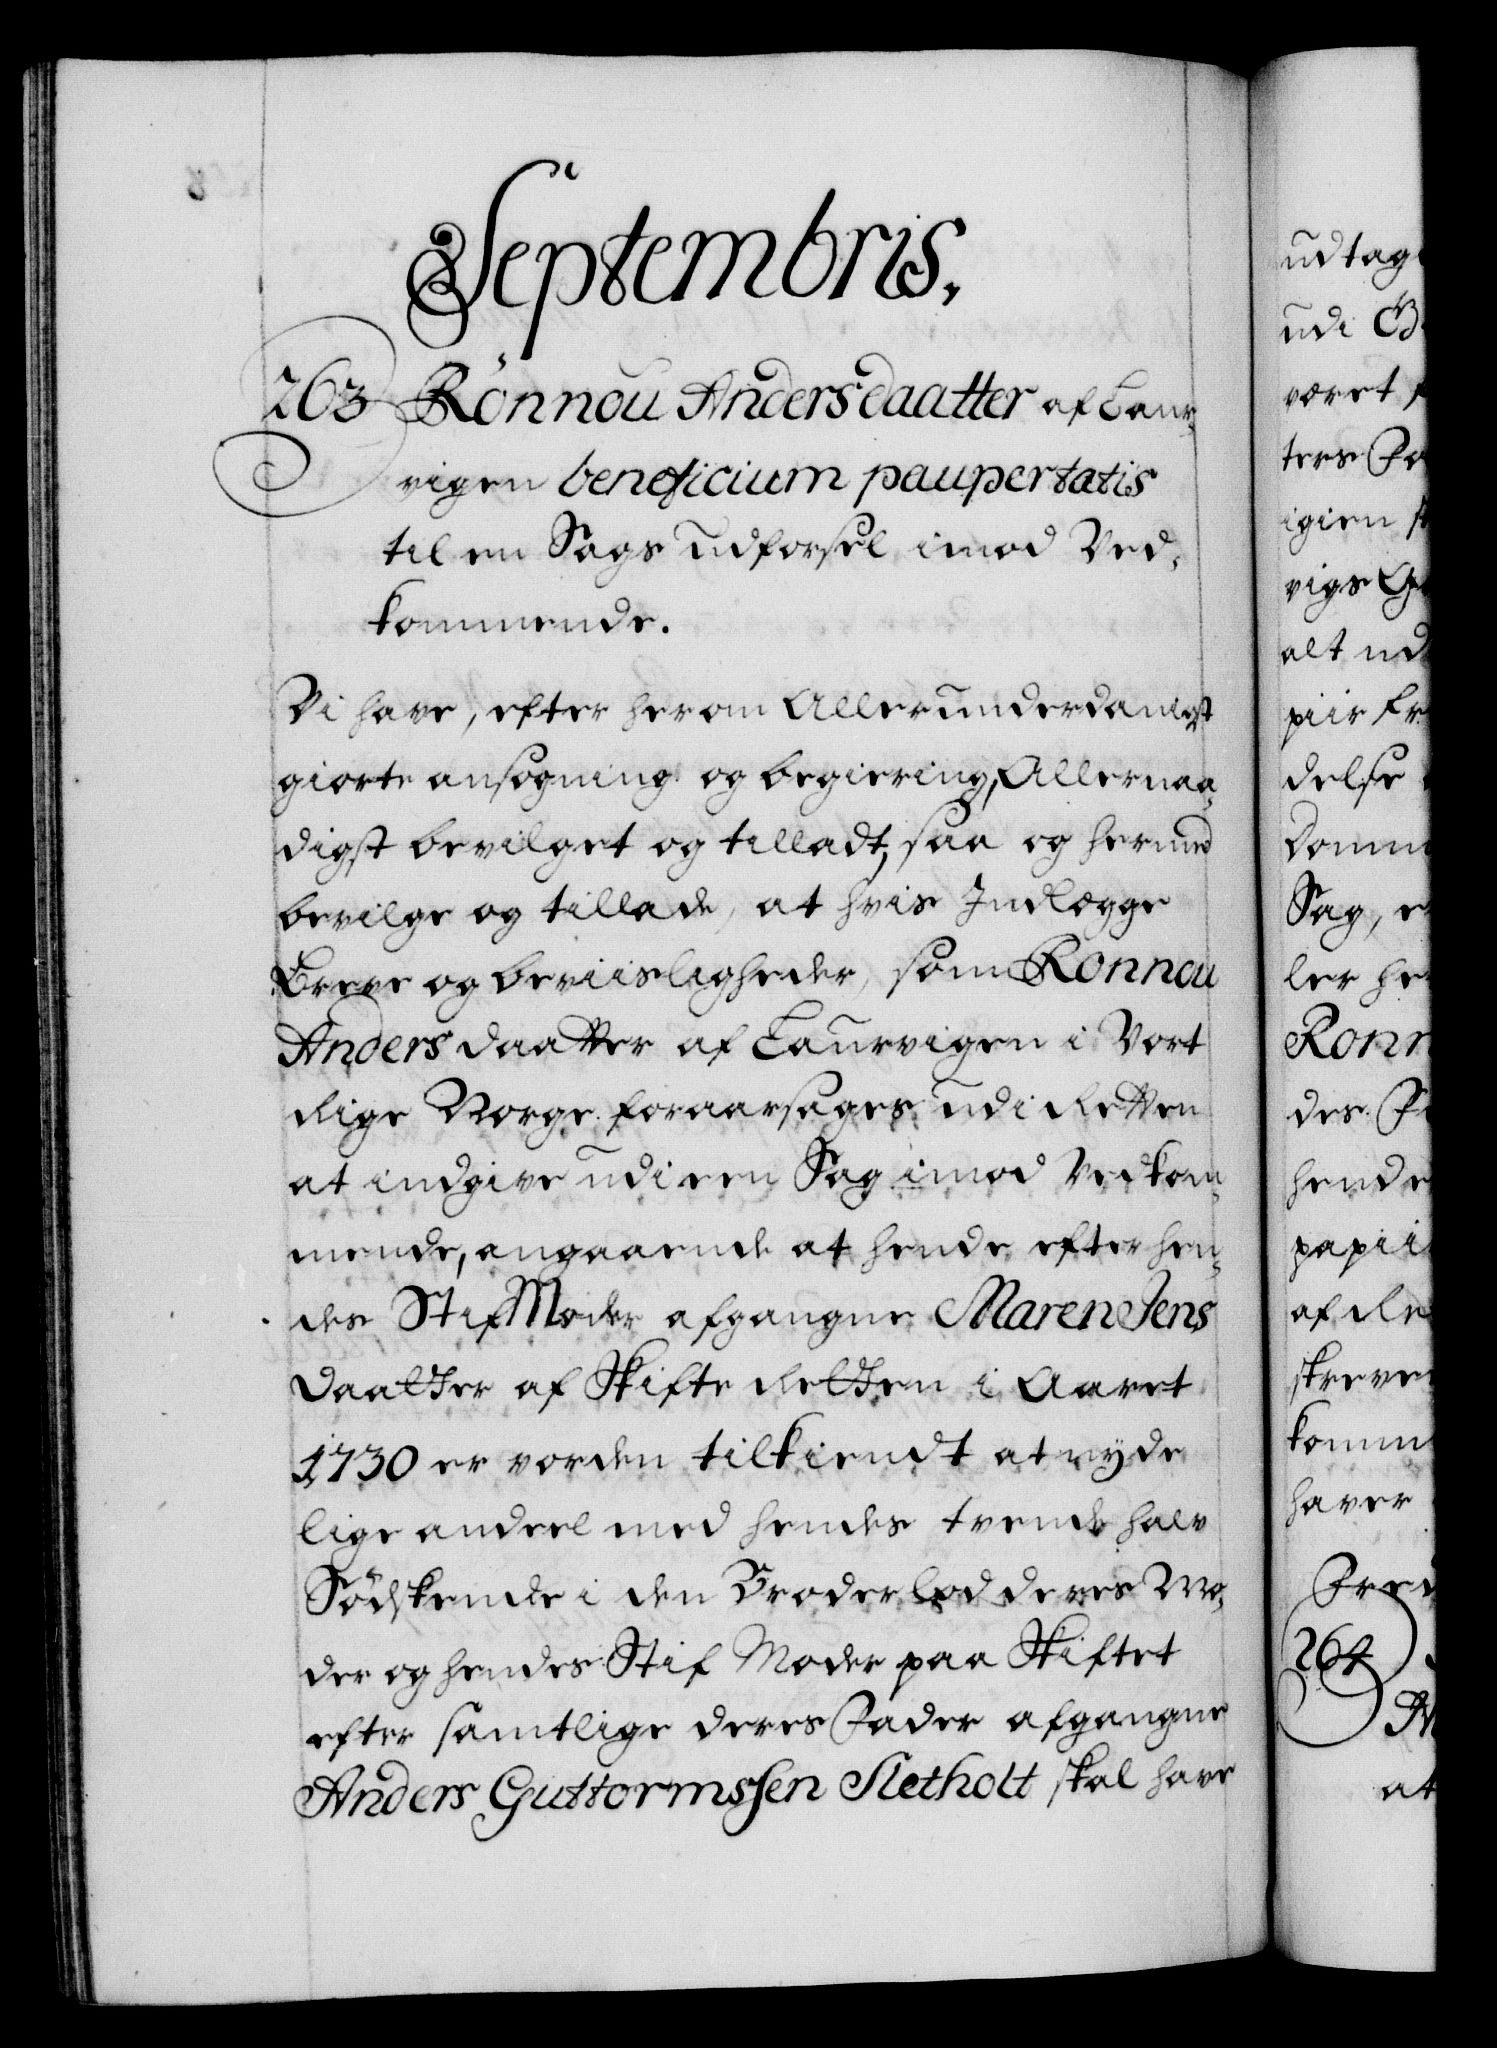 Septembris.
263 Rönnou Andersdaatter af Laur¬
vigen beneficium paupertatis
til en Sags udforsel imod Ved¬
kommende.
Vi have, efter herom Allerunderdanigst
giorte ansøgning og begiering, Allernaa¬
digst bevilget og tilladt, saa og hermed
bevilge og tillade, at hvis Indlægge
Breve og beviisligheder, som Ronnou
Anders daatter af Laurvigen i Vort
Rige Norge foraarsages udi Retten
at indgive udi een Sag imod Vedkom¬
mende, angaaende at hende efter hen¬
des StifModer afgangne Maren Jens
Daatter af Skifte Retten i Aaret
1730 er vorden tilkiendt at nyde
lige andeel med hendes tvende halv
Södskende i den Broderlod deres Mo¬
der og hendes Stif Moder paa Skiftet
efter samtlige deres Fader afgangne
Anders Guttormssen Sletholt skal have
udtag
udi
været
ters
igien
vigs
alt ud
piir
delse
Domm
Sag,
ler
Ronn
des
hende
papii
af
skreve
komm
haver
264
at